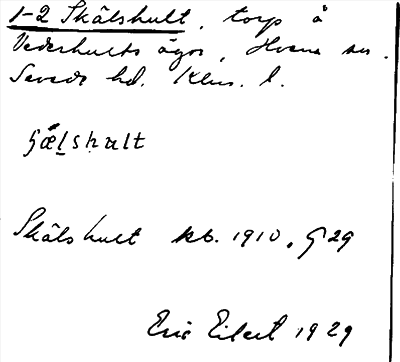 1-2 Skälshult, torp å
Vederhults ägor, Hvena sn.
Sevede hd. Klm. l.
Skälshult kb. 1910, § 29
Eric Eilert 1929